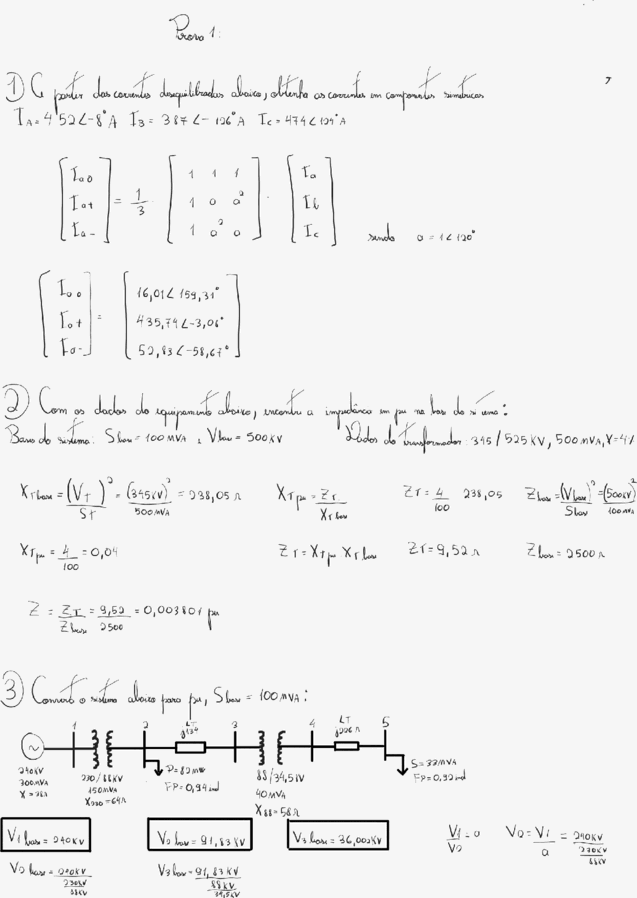 Prova 1:
7
1) A partir das correntes desequilibradas abaixo, obtenha as correntes em componentes simétricas
IA = 452∠-8° A IB = 387∠-126° A IC = 474∠129° A
[Ia0 Ia+ Ia-] = 1/3 · [1 1 1; 1 a a²; 1 a² a] · [Ia Ib Ic] sendo a = 1∠120°
[Ia0 Ia+ Ia-] = [16,01∠159,31° 435,74∠-3,06° 52,83∠-58,67°]
2) Com os dados do equipamento abaixo, encontre a impedância em pu na base do sistema:
Bases do sistema: Sbase = 100 MVA e Vbase = 500 KV Dados do transformador: 345/525 KV, 500 MVA, X=4%
XTbase = (VT)²/ST = (345KV)²/500MVA = 238,05 Ω XTpu = ZT/XTbase ZT = 4/100 238,05 Zbase = (Vbase)²/Sbase = (500KV)²/100MVA
XTpu = 4/100 = 0,04 ZT = XTpu XTbase ZT = 9,52 Ω Zbase = 2500 Ω
Z = ZT/Zbase = 9,52/2500 = 0,003801 pu
3) Converta o sistema abaixo para pu, Sbase = 100 MVA:
1 2 LT 3 4 LT 5
240KV
300MVA
230/88KV
150MVA
X230=64Ω
FP=0,94 ind
88/34,5KV
40MVA
X88=58Ω
S=32MVA
FP=0,92 ind
V1 base = 240KV V2 base = 91,83 KV V3 base = 36,00 KV V1/V2 = a V2 = V1/a = 240KV/(230KV/88KV)
V2 base = 240KV/(230KV/88KV) V3 base = 91,83 KV/(88KV/34,5KV)